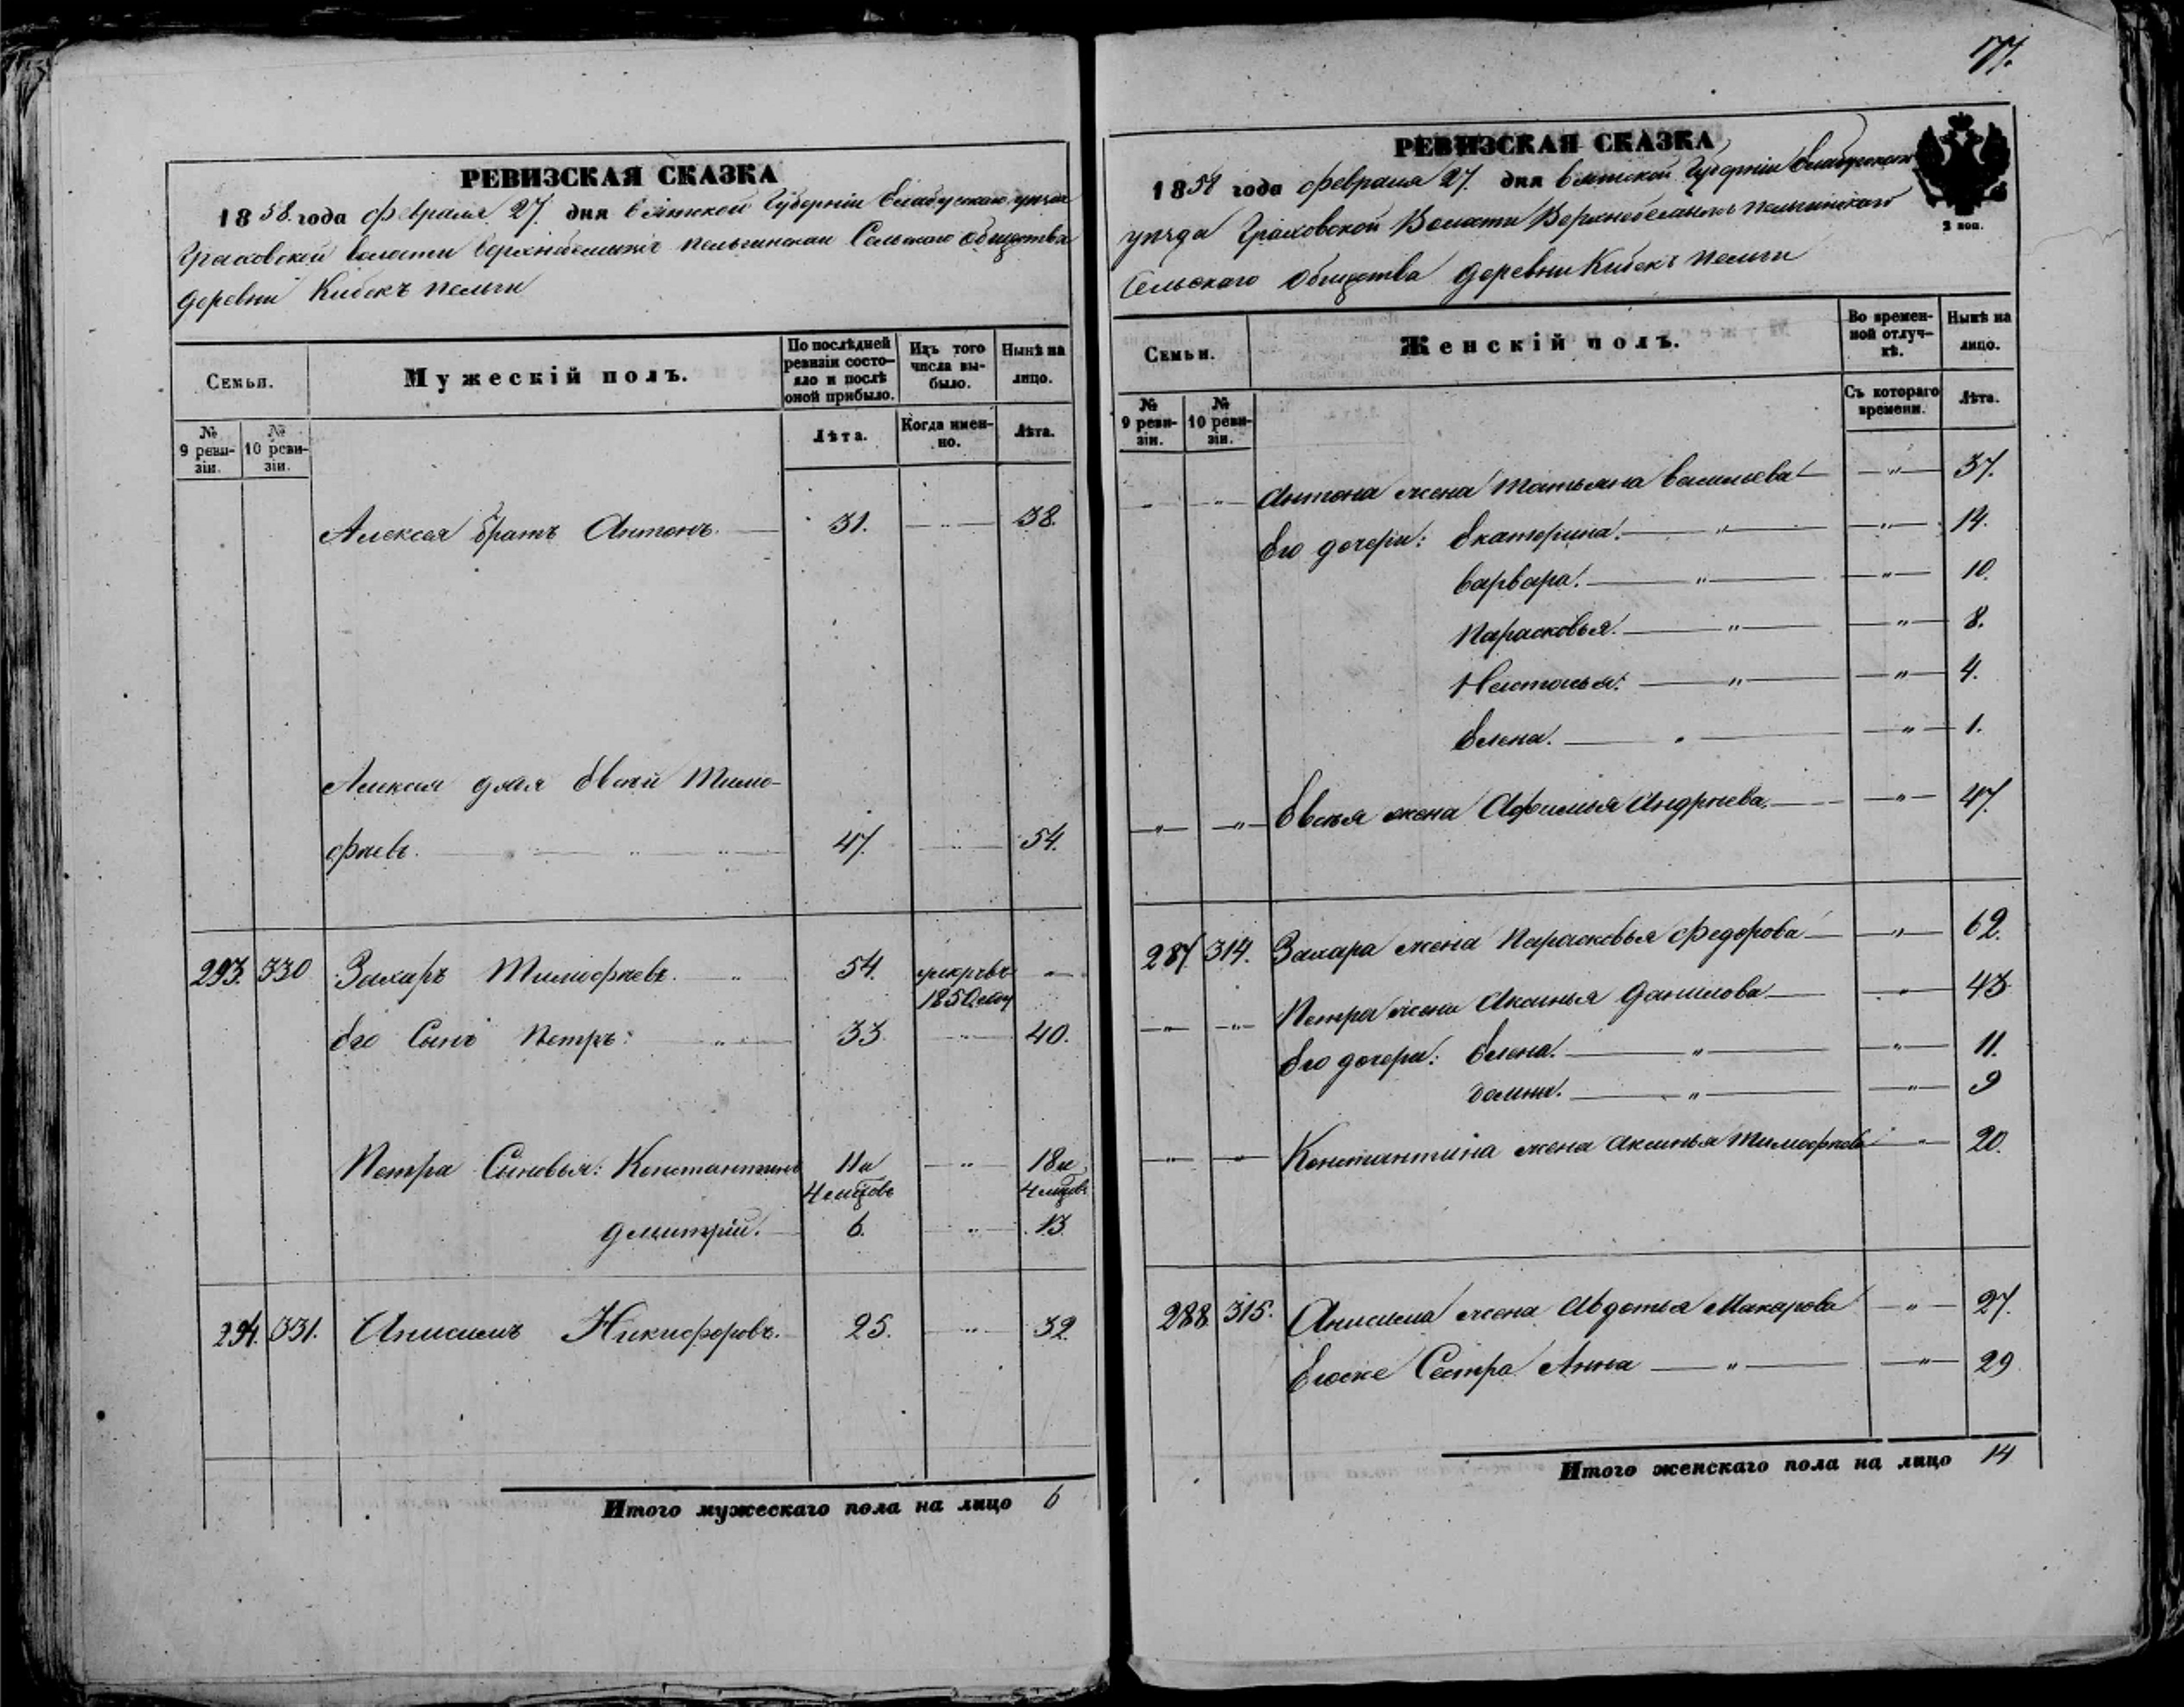 РЕВИЗСКАЯ СКАЗКА
1858 года февраля 27 дня Вятской Губернии Елабужскаго уезда
Граховской волости Сельскаго Общества
деревни Кибекъ пельги
Семьи.
Мужескій полъ.
По послѣдней ревизіи состояло и послѣ оной прибыло.
Изъ того числа выбыло.
Нынѣ на лицо.
№ 9 ревизіи.
№ 10 ревизіи.
Лѣта.
Когда именно.
Лѣта.
Алексея братъ Антонъ. 31. — „ — 38.
Алексея дядя Евсей Тимо-
феевъ. 47. — „ — 54.
293. 330 Захаръ Тимофеевъ. „ 54. умеръ въ „
1850 году
Его Сынъ Петръ: „ 33 — „ — 40.
Петра Сыновья: Константинъ 11 и — „ — 18 и
4 мѣсцовъ 4 мѣсцовъ
Дмитрій. 6. — „ — 13.
294. 331. Анисимъ Никифоровъ. 25. — „ — 32.
Итого мужескаго пола на лицо 6
177.
РЕВИЗСКАЯ СКАЗКА
1858 года февраля 27. дня Вятской Губерніи Елабужскаго
2 коп.
уезда Граховской Волости
Сельскаго Общества деревни Кибекъ пельги
Семьи.
Женскій полъ.
Во временной отлучкѣ.
Нынѣ на лицо.
№ 9 ревизіи.
№ 10 ревизіи.
Съ котораго времени.
Лѣта.
„ „ Антона жена Татьяна Васильева — „ — 37.
Его дочери: Екатерина. — „ — — „ — 14.
Варвара. — „ — — „ — 10.
Парасковья. — „ — — „ — 8.
Настасья. — „ — — „ — 4.
Елена. — „ — — „ — 1.
„ „ Евсея жена Афимья Андреева. — „ — 47.
287. 314. Захара жена Парасковья Федорова — „ — 62.
„ „ Петра жена Аксинья Данилова — „ — 43
Его дочери: Елена. — „ — — „ — 11.
Домна. — „ — — „ — 9
„ „ Константина жена Аксинья Тимофеева — „ — 20.
288 315. Анисима жена Авдотья Макарова — „ — 27.
Его же Сестра Анна — „ — — „ — 29
Итого женскаго пола на лицо 14